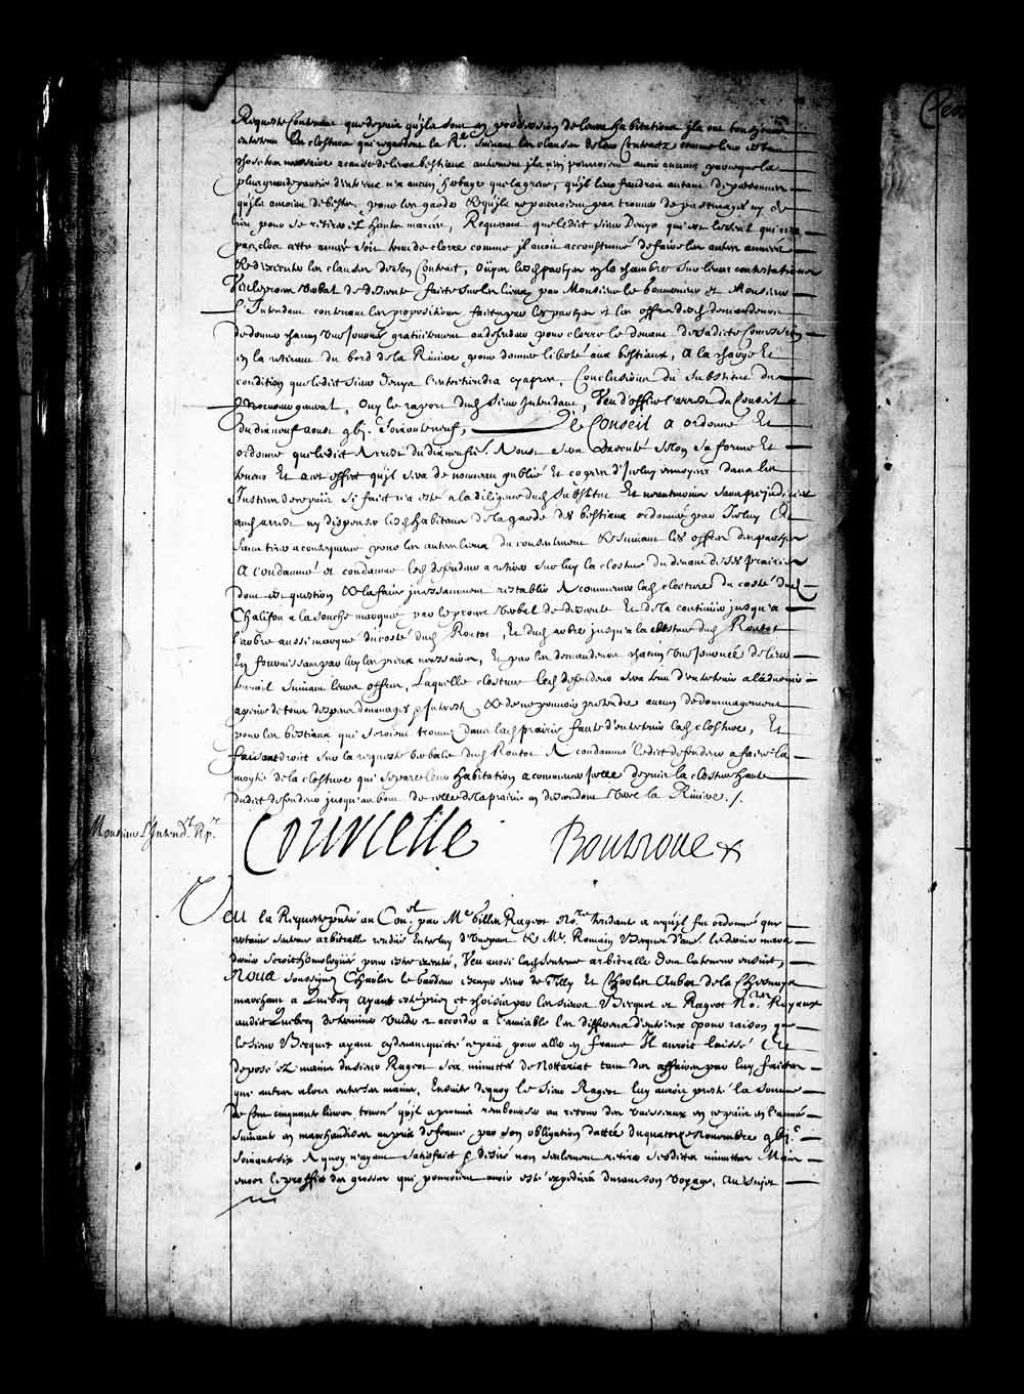 Requeste Contenant que depuis qu'ils sont en possession de leurs habitations ils ont tousjours
entretenu les clostures qui regardent la R.e suivant les clauses de leur Contract comme leur estant
chose tres necessaire a cause de leurs bestiaux autrement ils n'en pourroient avoir aucuns parceque la
plus grande partie d'entreux n'a aucun herbage que la greve, qu'il leur faudroit autant de personnes
qu'ils auroient de bestes pour les garder & qu'ils ne pourroient pas trouver de pasturages ny de
lieu pour se retirer es hautes marées, Requerant que ledit sieur Denys qui est le seul qui n'est
pas clos cette année soit tenu de clorre comme il avoit accoustumé de faire les autres années
& d'executer les clauses de son Contract, Ouyes lesd. parties en la chambre sur leurs contestations
Veu le procez verbal de descente faite sur les lieux par Monsieur le Gouverneur et Monsieur
l'Intendant contenant les propositions faites par les parties et les offres desd. demandeurs
de donner chacun une journée gratuitement au defendeur pour clorre le devant desdites Concessions
en la retirant du bord de la Riviere pour donner liberté aux bestiaux, A la charge Et
condition que ledit sieur Denys l'entretiendra cyapres, Conclusions du Substitut du
Procureur general, Ouy le raport dud. sieur Intendant, Veu d'office l'arrest du Conseil
du dixneuf aoust gbj. soixante neuf, Le Conseil a ordonné Et
ordonne que ledit Arrest du dixneufie. Aoust sera Executé selon sa forme Et
teneur Et a cet effect qu'il sera de nouveau publié Et copies d'Iceluy envoyées dans les
Justices de ce païs si fait n'a esté a la diligence dud. Substitut Et neantmoins sans prejudicier
aud. arrest ny dispenser lesd. habitans de la garde des bestiaux ordonnée par Iceluy Et
sans tirer a consequence pour les autres lieux du consentement & suivant les offres des parties
A Condamné et condamne led. defendeur a retirer sur luy la closture du devant desd. prairies
dont est question & la faire incessamment restablir A commencer lad. closture du costé dud.
Chalifou a la souche marquée par le procez verbal de descente Et de la continüer jusqu'a
l'arbre aussi marqué du costé dud. Routot, Et dud. arbre jusqu'a la closture dud. Routot
En fournissant par luy les pieux necessaires, Et par les demandeurs chacun une journée de leur
travail suivant leurs offres, Laquelle closture led. defendeur sera tenu d'entretenir a l'advenir
a peine de tous despens dommages & Interests & de ne pouvoir pretendre aucun dedommagement
pour les bestiaux qui seroient trouvez dans lad. prairie faute d'entretenir lad. closture, Et
faisant droit sur la requeste verbale dud. Routot A condamné ledit defendeur a faire la
moytié de la closture qui separe leur habitation a commencer Icelle depuis la closture haute
dudit defendeur jusqu'au bout de celle de la prairie en descendant vers la Riviere ./.
Monsieur l'Intend.t Rp.r
Courcelle Bouteroue
Veu la Requeste prntée au Con.el par M.e Gilles Rageot No.re tendante a ce qu'il fut ordonné que
certaine sentence arbitralle rendüe Entre luy d'une part & M.e Romain Becquet d'autre le dernier mars
dernier seroit homologuée pour estre executée, Veu aussi lad. sentence arbitralle dont la teneur ensuit,
NOUS soussignez Charles le Gardeur Escuyer sieur de Tilly Et Charles Aubert de la Chesnaye
marchant a Quebecq ayant esté priez et choisis par les sieurs Becquet et Rageot No.res Royaux
audit Quebecq de terminer vuider et accorder a l'amiable les differens d'entreux pour raison que
le sieur Becquet ayant cydevant quicté ce païs pour aller en france Il auroit laissé Et
deposé es mains du sieur Rageot ses minuttes de Nottariat tant des affaires par luy faites
que autres alors entre ses mains, Ensuite de quoy le sieur Rageot luy auroit presté la somme
de Cent cinquante livres tournois qu'il a promis rembourser au retour des vaisseaux en ce païs en l'année
suivante en marchandises au prix de france par son obligation dattée du quatorze Novembre gbj.c
soixante six A quoy n'ayant satisfait & desiré non seulement retirer sesdites minuttes Mais
encor le proffit des grosses qui pourroient avoir esté expediées durant son voyage, Au sujet